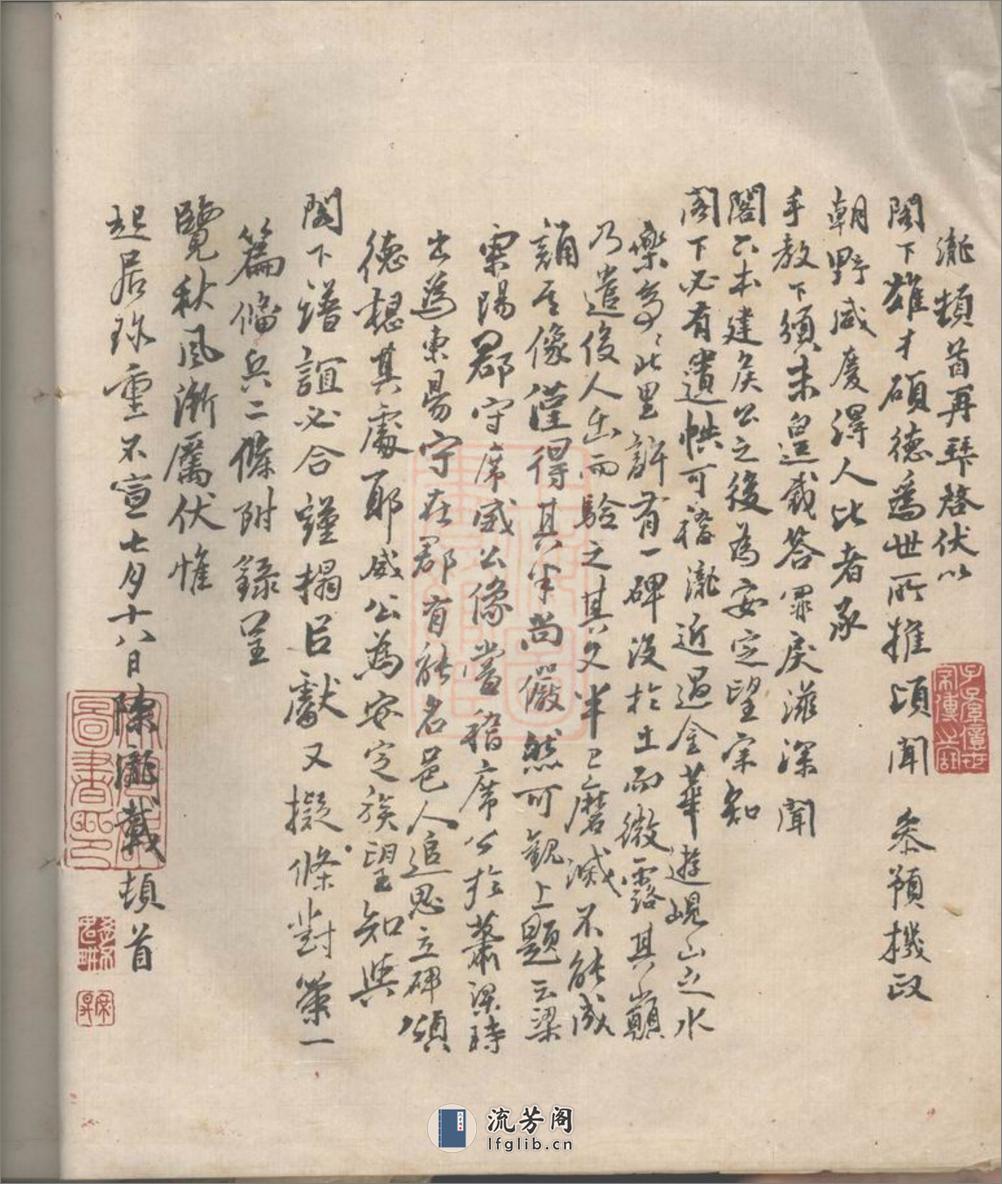 瀧頓首再拜啓伏以
閣下雄才碩德爲世所推頃聞 叅預機政
朝野咸慶得人比者承
手教下頒未遑裁答罪戾滋深聞
閣下本建侯公之後為安定望宗知
閣下必有遺帙可稽瀧近過金華遊峴山之水
樂亭亭北里許有一碑沒於土而微露其顛
乃遣後人出而驗之其文半已磨滅不能成
誦其像僅得其半尚儼然可觀上題云梁
東陽郡守席威公像當稽席公於蕭梁時
出為東昜守在郡有能名邑人追思立碑頌
德想其處耶威公為安定族望知與
閣下譜誼必合謹搨呂獻又擬條對策一
篇俻兵二條附錄呈
覽秋風漸厲伏惟
起居珍重不宣七月十八日陳瀧載頓首
圖書
流芳阁
lfglib.cn